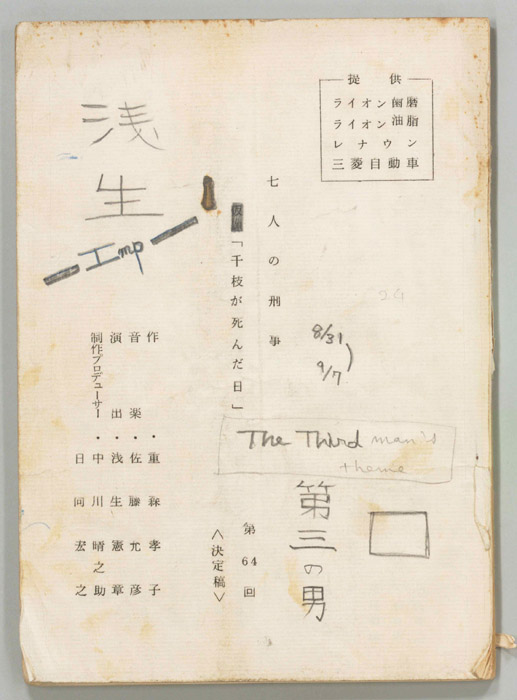 提供
ライオン歯磨
ライオン油脂
レナウン
三菱自動車
七人の刑事
「千枝が死んだ日」
第64回
<決定稿>
作・重森孝子
音楽・佐藤允彦
演出・浅生憲章
制作プロデューサー・中川晴之助
日向宏之
浅生
Imp
24
8/31
9/7
The Third man's
theme
第三の男